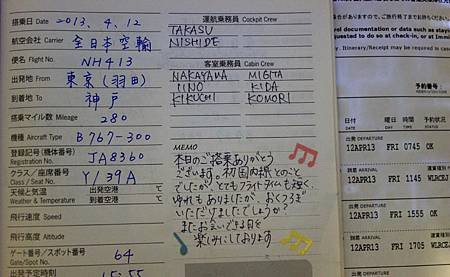 搭乗日 Date 2013. 4. 12
航空会社 Carrier 全日本空輸
便名 Flight No. NH413
出発地 From 東京(羽田)
到着地 To 神戸
搭乗マイル数 Mileage 280
機種 Aircraft Type B767-300
登録記号(機体番号) Registration No. JA8360
クラス/座席番号 Class / Seat No. Y/39A
天候と気温 Weather & Temperature 出発空港 ℃
到着空港 ℃
飛行速度 Speed
飛行高度 Altitude
ゲート番号/スポット番号 Gate/Spot No. 64
出発予定時刻 15:55
運航乗務員 Cockpit Crew
TAKASU
NISHIDE
客室乗務員 Cabin Crew
NAKAYAMA MIGITA
IINO KIDA
KIKUCHI KOMORI
MEMO
本日のご搭乗ありがとう
ございます。初国内線とのこと
でしたが、とてもフライトタイムも短く、
ゆれもありましたが、おくつろぎ
いただけましたでしょうか?
またお会いできる日を
楽しみにしております
場合がありますので、ご旅行終了までお持ちくだ
vel documentation or data such as
quested to do so at check-in, or at
y. Itinerary/Receipt may be required in
予約番号:
日付 曜日 時間 予約状態
DATE DAY TIME STATUS
出発 DEPARTURE
12APR13 FRI 0745 OK
到着 ARRIVAL
12APR13 FRI 1145
出発 DEPARTURE
12APR13 FRI 1555 OK
到着 ARRIVAL
12APR13 FRI 1705